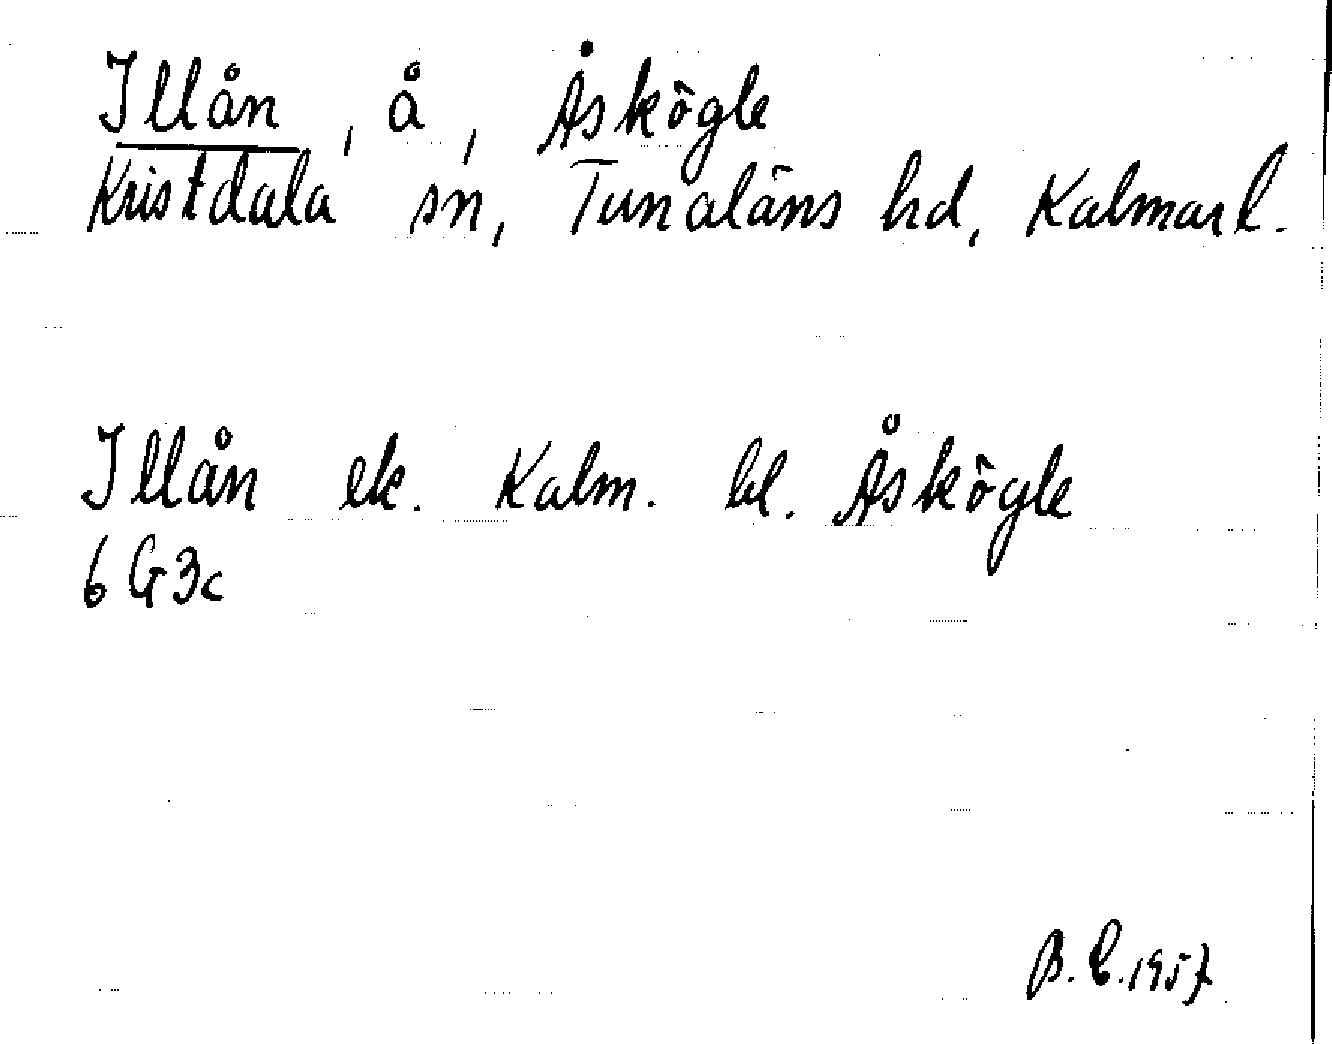 Illån, å, Åskögle
Kristdala sn, Tunaläns hd, Kalmar l.
Illån ek. Kalm. bl. Åskögle
6 G3c
B. E. 1957